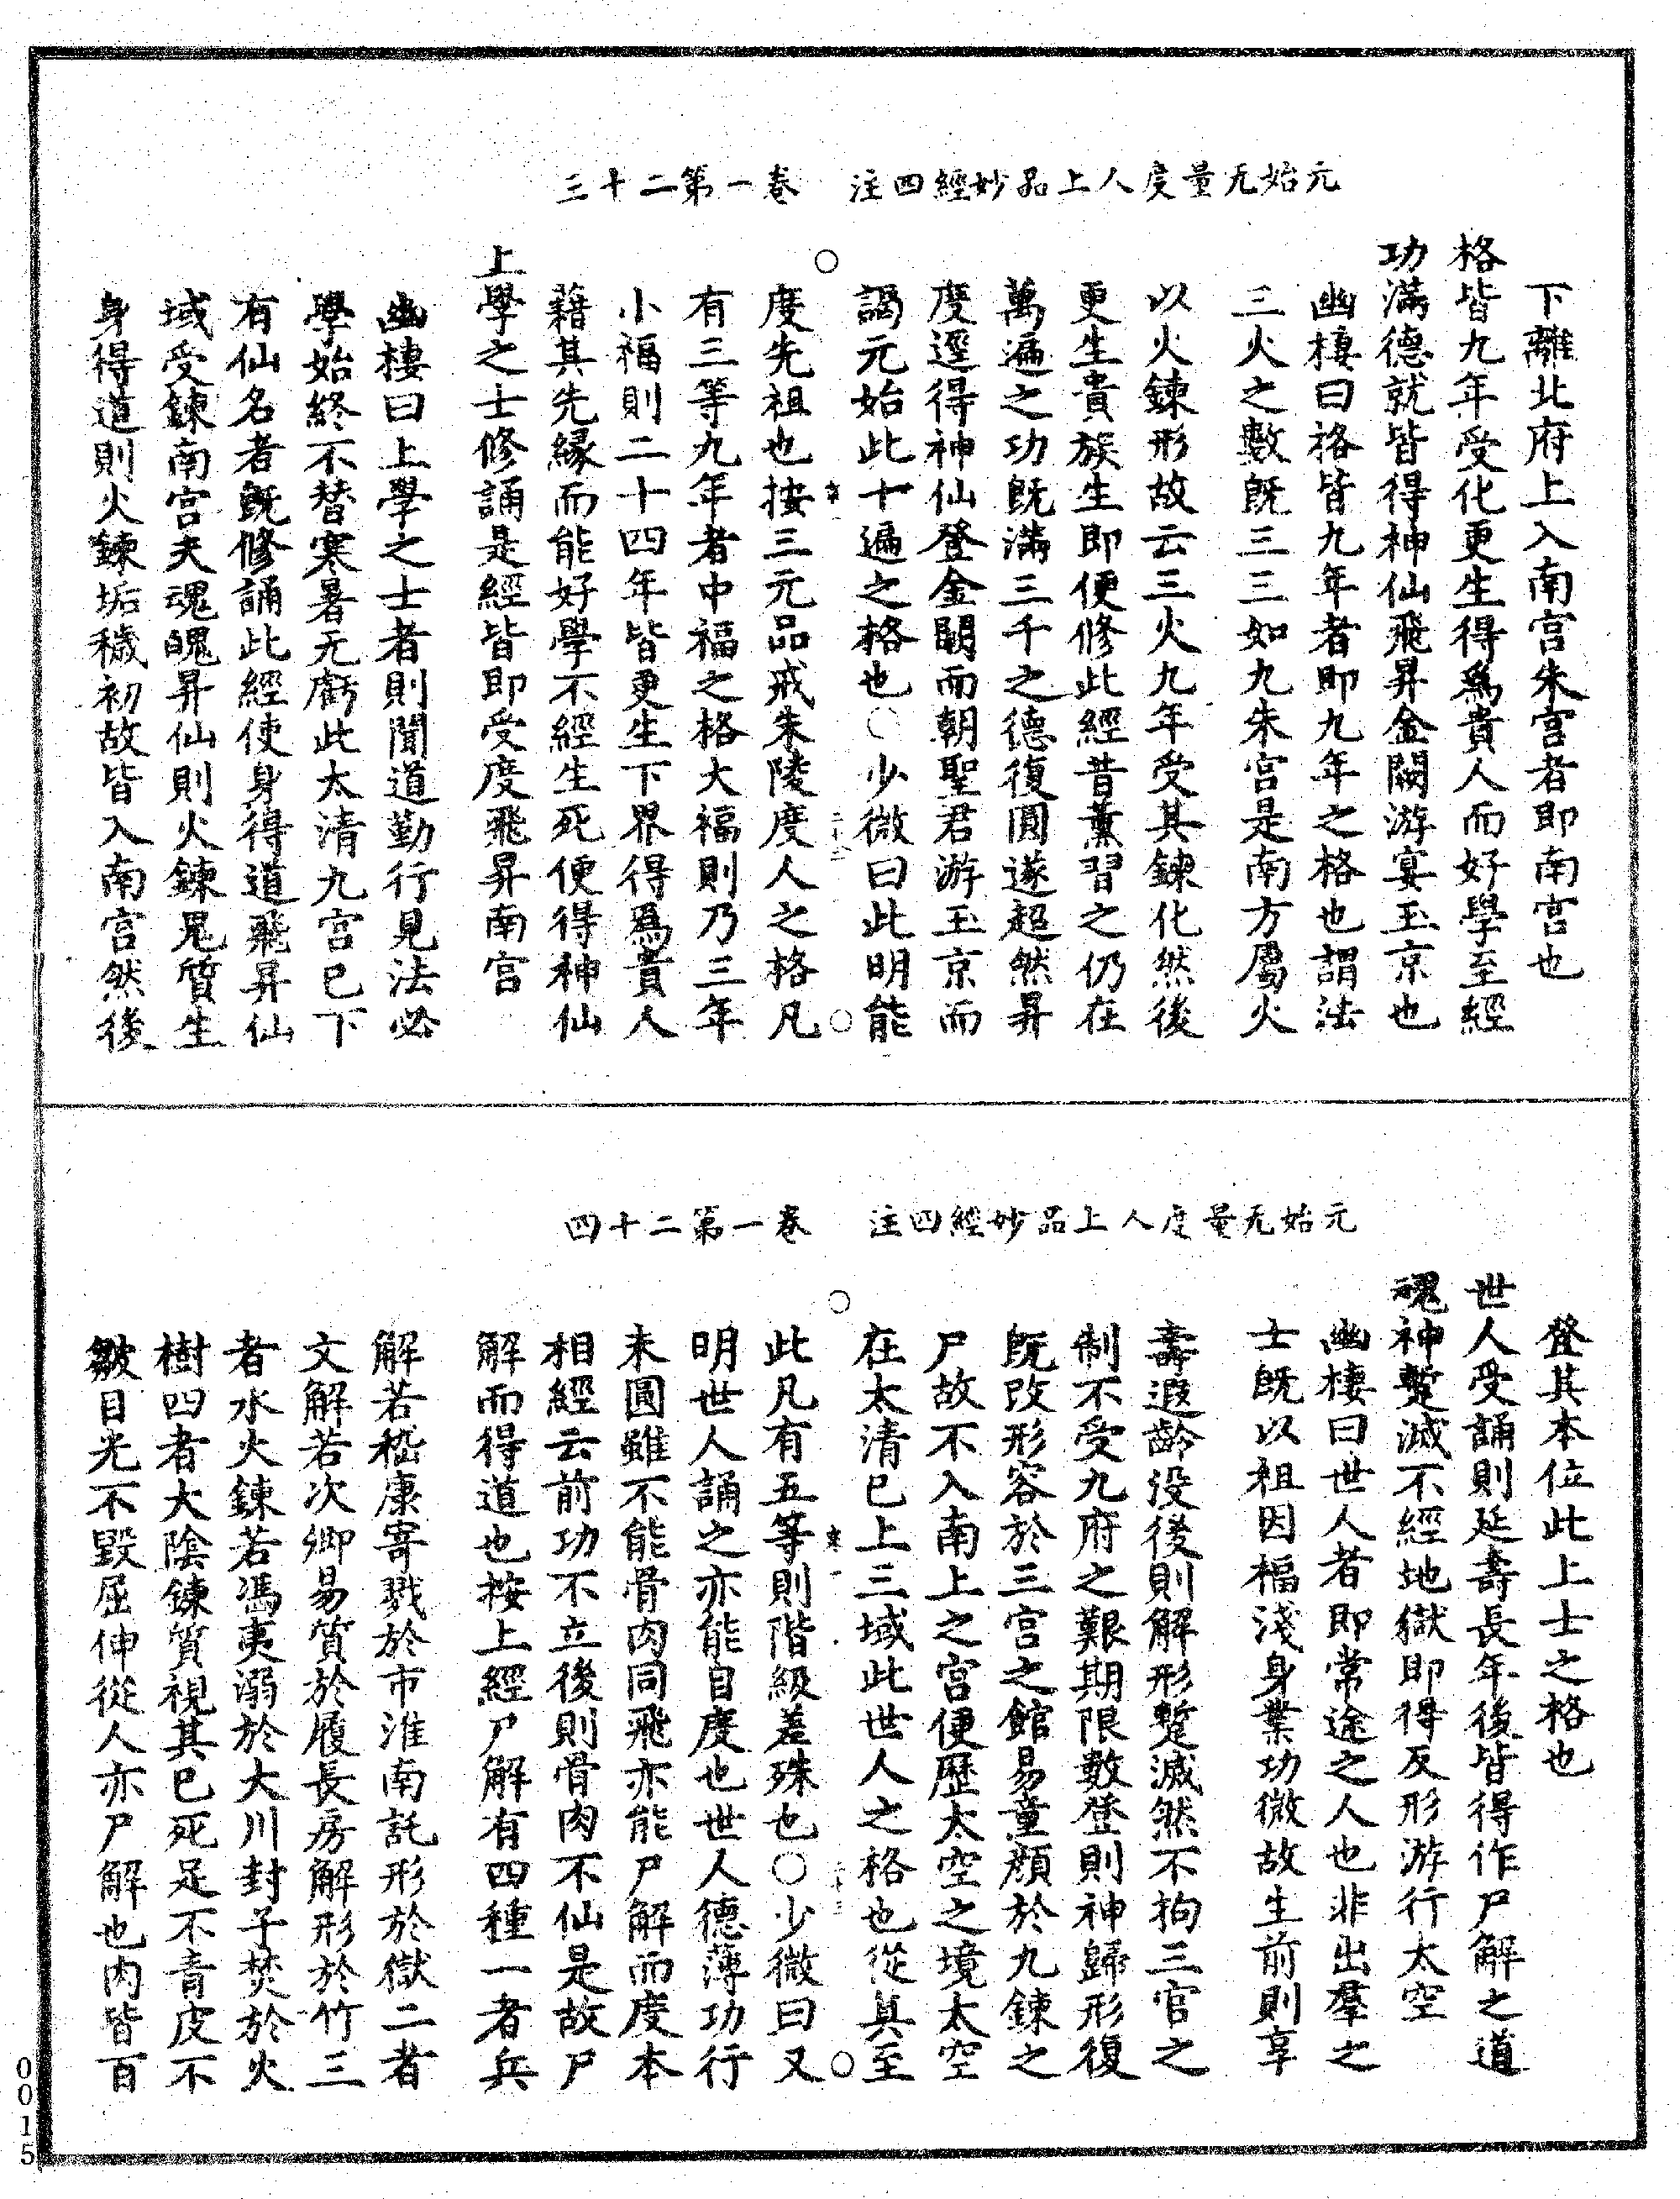 元始无量度人上品妙經四注　卷一第二十三
下離北府上入南宮朱宮者即南宮也
格皆九年受化更生得爲貴人而好學至經
功滿德就皆得神仙飛昇金闕游宴玉京也
幽棲曰格皆九年者即九年之格也謂法
三火之數既三三如九朱宮是南方屬火
以火鍊形故云三火九年受其鍊化然後
更生貴族生即便修此經昔薰習之仍在
萬遍之功既滿三千之德復圓遂超然昇
度逕得神仙登金闕而朝聖君游玉京而
謁元始此十遍之格也○少微曰此明能
度先祖也按三元品戒朱陵度人之格凡
有三等九年者中福之格大福則乃三年
小福則二十四年皆更生下界得爲貴人
藉其先緣而能好學不經生死便得神仙
上學之士修誦是經皆即受度飛昇南宮
幽棲曰上學之士者則聞道勤行見法必
學始終不替寒暑无虧此太清九宮已下
有仙名者既修誦此經使身得道飛昇仙
域受鍊南宮夫魂魄昇仙則火鍊鬼質生
身得道則火鍊垢穢初故皆入南宮然後
元始无量度人上品妙經四注　卷一第二十四
登其本位此上士之格也
世人受誦則延壽長年後皆得作尸解之道
魂神蹔滅不經地獄即得反形游行太空
幽棲曰世人者即常途之人也非出羣之
士既以祖因福淺身業功微故生前則享
壽遐齡没後則解形蹔滅然不拘三官之
制不受九府之艱期限數登則神歸形復
既改形容於三宮之館易童顏於九鍊之
尸故不入南上之宮便歷太空之境太空
在太清已上三域此世人之格也從真至
此凡有五等則階級差殊也○少微曰又
明世人誦之亦能自度也世人德薄功行
未圓雖不能骨肉同飛亦能尸解而度本
相經云前功不立後則骨肉不仙是故尸
解而得道也按上經尸解有四種一者兵
解若嵇康寄戮於市淮南託形於獄二者
文解若次卿易質於履長房解形於竹三
者水火鍊若馮夷溺於大川封子焚於火
樹四者太陰鍊質視其已死足不青皮不
皺目光不毀屈伸從人亦尸解也肉皆百
0015